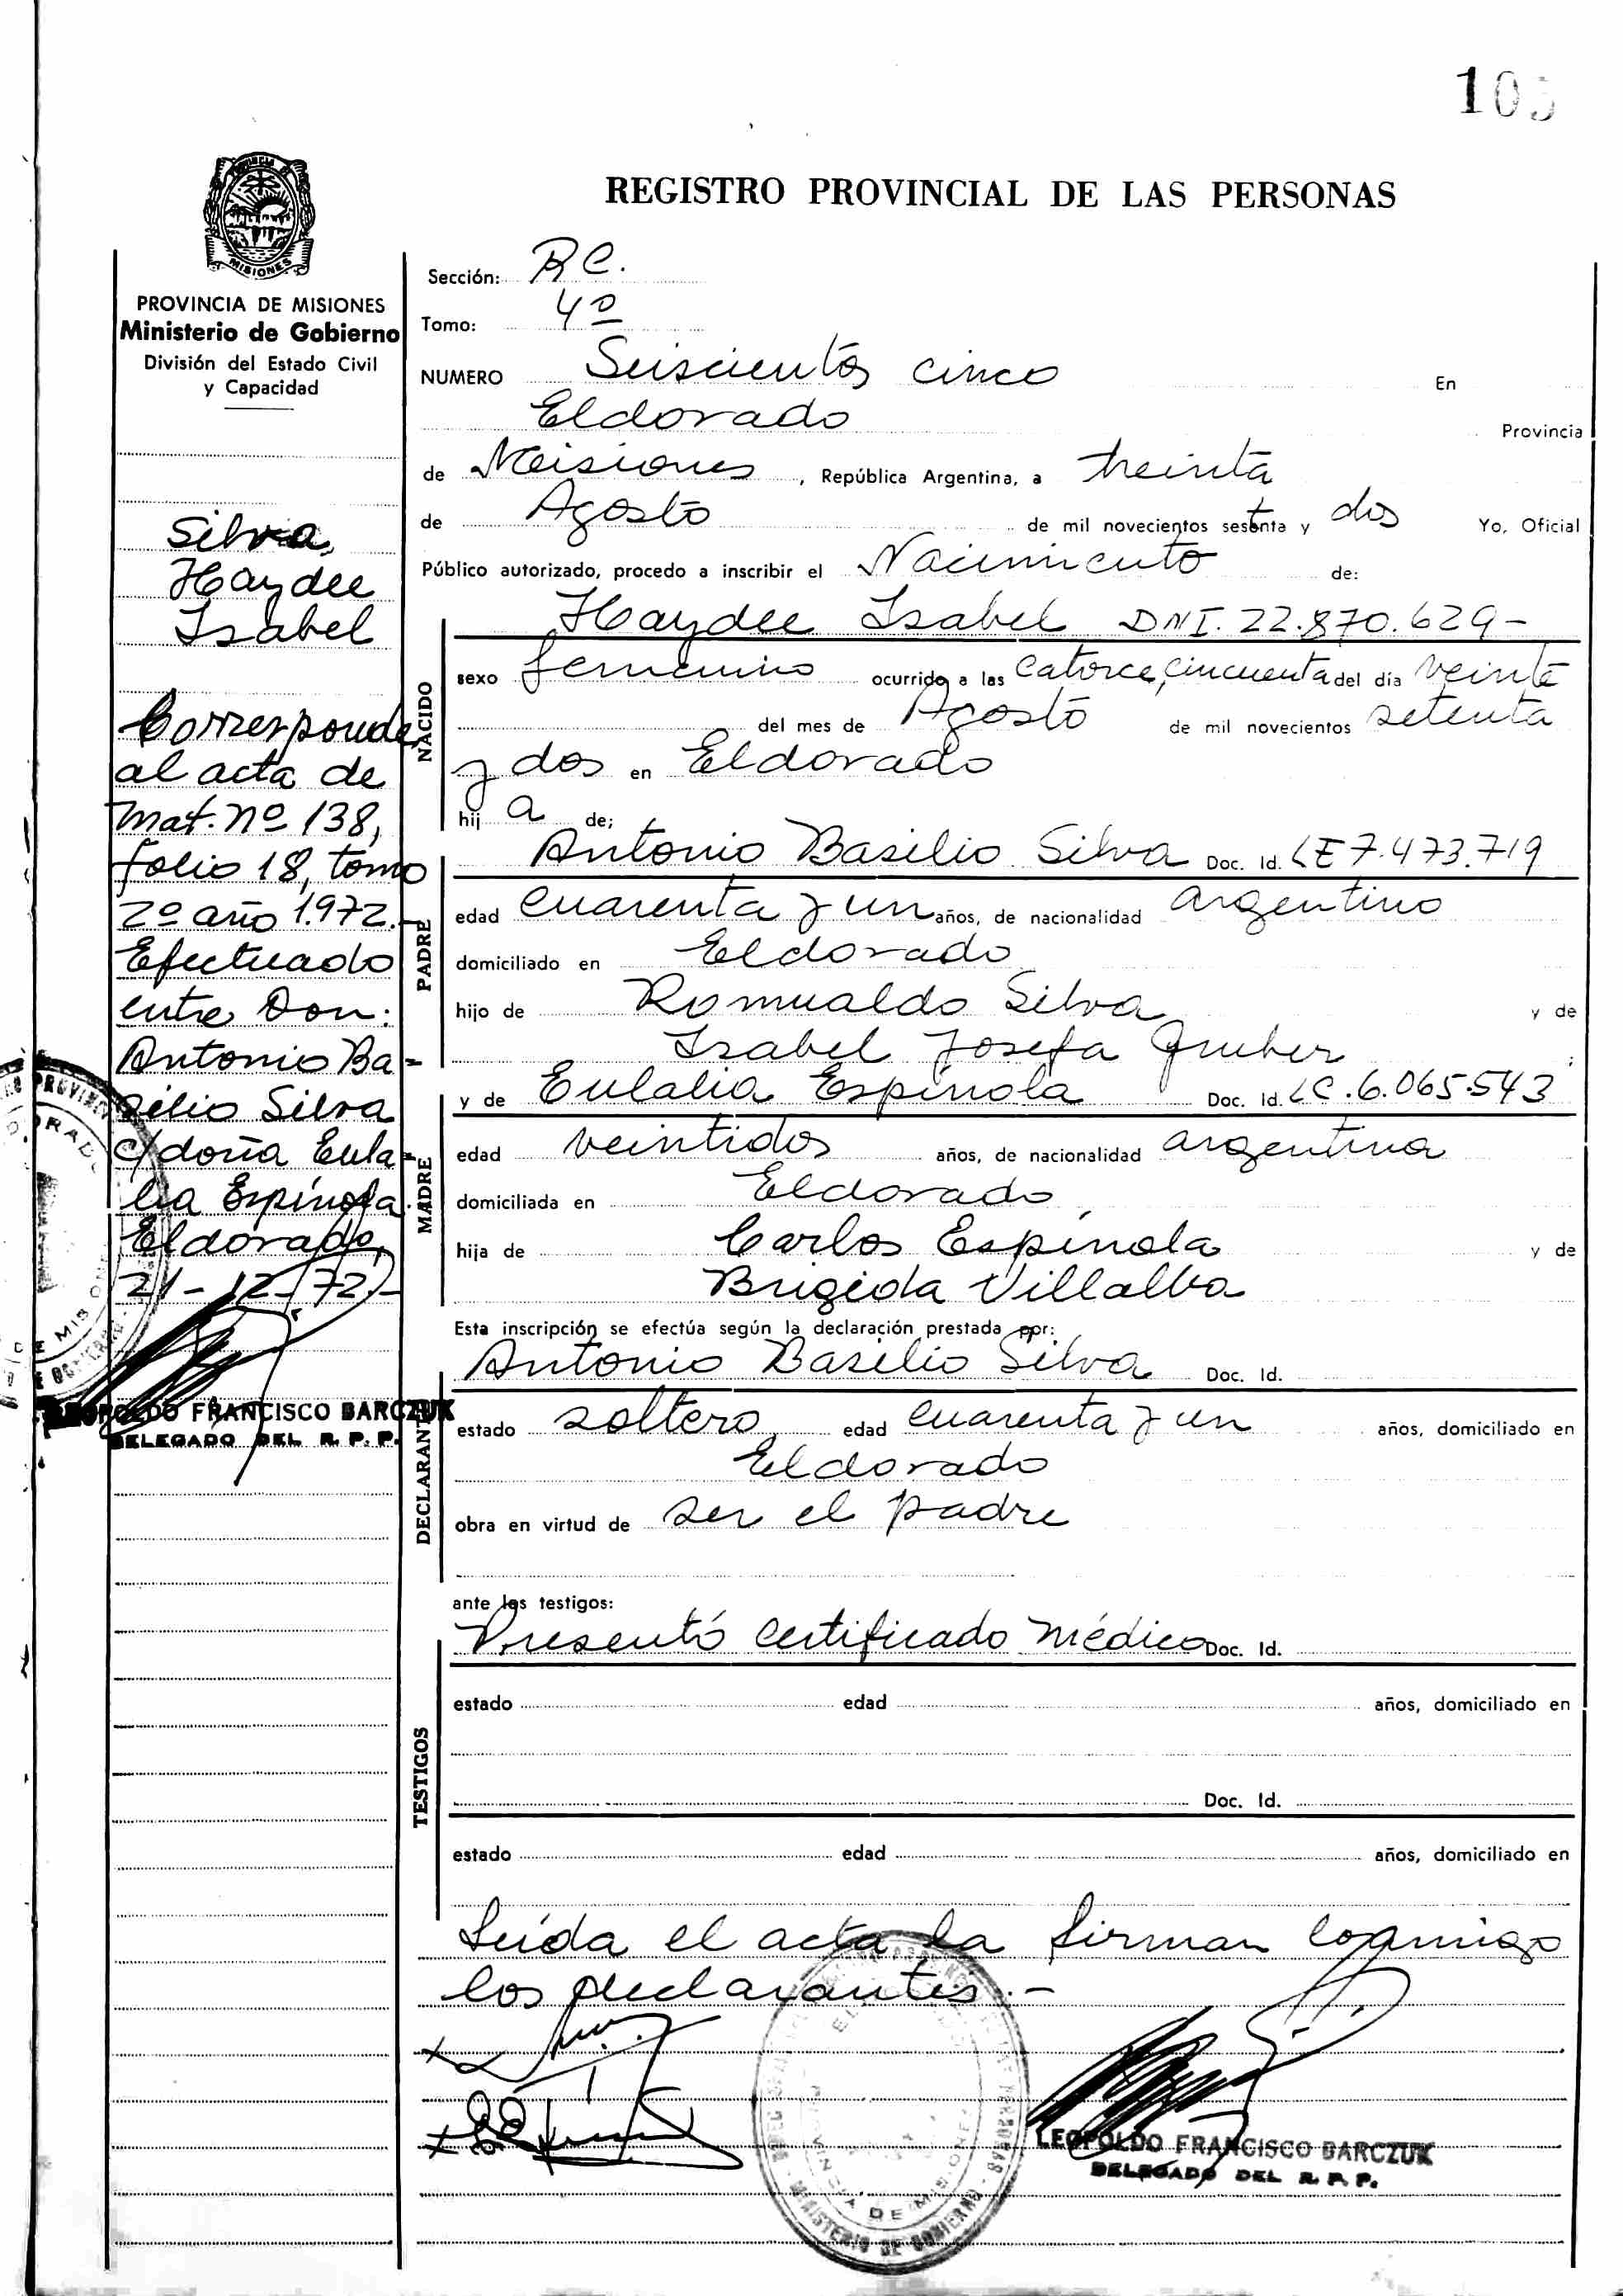 105
REGISTRO PROVINCIAL DE LAS PERSONAS
MISIONES
PROVINCIA DE MISIONES
Ministerio de Gobierno
División del Estado Civil
y Capacidad
Silva,
Haydee
Isabel
Corresponde
al acta de
Mat. nº 138,
folio 18, tomo
2º año 1.972.-
Efectuado
entre Don:
Antonio Ba-
silio Silva
c/doña Eula-
lia Espínola.
Eldorado,
21-12-72.-
LEOPOLDO FRANCISCO BARCZUK
DELEGADO DEL R. P. P.
Sección: R C.
Tomo: 4º
NUMERO Seiscientos cinco En
Eldorado Provincia
de Misiones, República Argentina, a treinta
de Agosto de mil novecientos setenta y dos Yo, Oficial
Público autorizado, procedo a inscribir el Nacimiento de:
NACIDO
Haydee Isabel DNI. 22.870.629-
sexo femenino ocurrido a las catorce, cincuenta del día veinte
del mes de Agosto de mil novecientos setenta
y dos en Eldorado
hij a de;
PADRE
Antonio Basilio Silva Doc. Id. LE 7.473.719
edad cuarenta y un años, de nacionalidad argentino
domiciliado en Eldorado
hijo de Romualdo Silva y de
Isabel Josefa Gruber ;
MADRE
y de Eulalia Espínola Doc. Id. LC.6.065.543
edad veintidos años, de nacionalidad argentina
domiciliada en Eldorado
hija de Carlos Espínola y de
Brigida Villalba
Esta inscripción se efectúa según la declaración prestada por:
DECLARANTE
Antonio Basilio Silva Doc. Id.
estado soltero, edad cuarenta y un años, domiciliado en
Eldorado
obra en virtud de ser el padre
ante los testigos:
TESTIGOS
Presentó certificado médico Doc. Id.
estado edad años, domiciliado en
Doc. Id.
estado edad años, domiciliado en
Leída el acta la firman conmigo
los declarantes.-
PROVINCIA DE MISIONES
MINISTERIO DE GOBIERNO
LEOPOLDO FRANCISCO BARCZUK
DELEGADO DEL R. P. P.